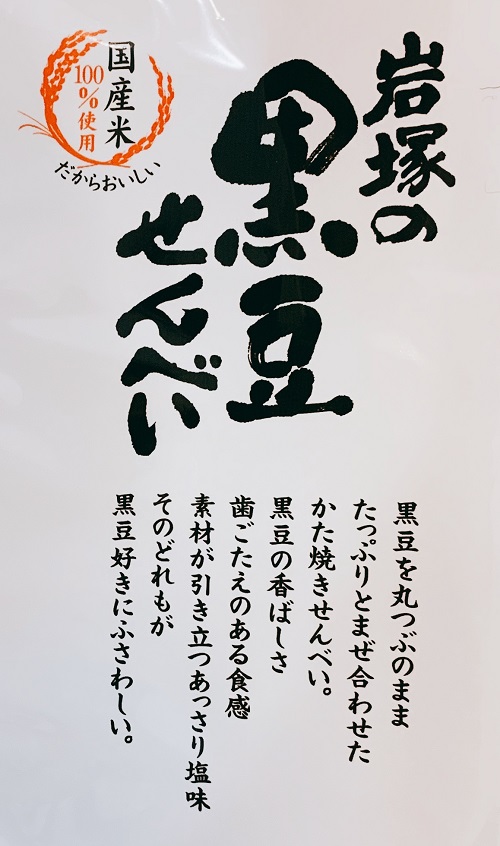 岩塚の
黒豆
せんべい
国産米
100%使用
だからおいしい
黒豆を丸つぶのまま
たっぷりとまぜ合わせた
かた焼きせんべい。
黒豆の香ばしさ
歯ごたえのある食感
素材が引き立つあっさり塩味
そのどれもが
黒豆好きにふさわしい。